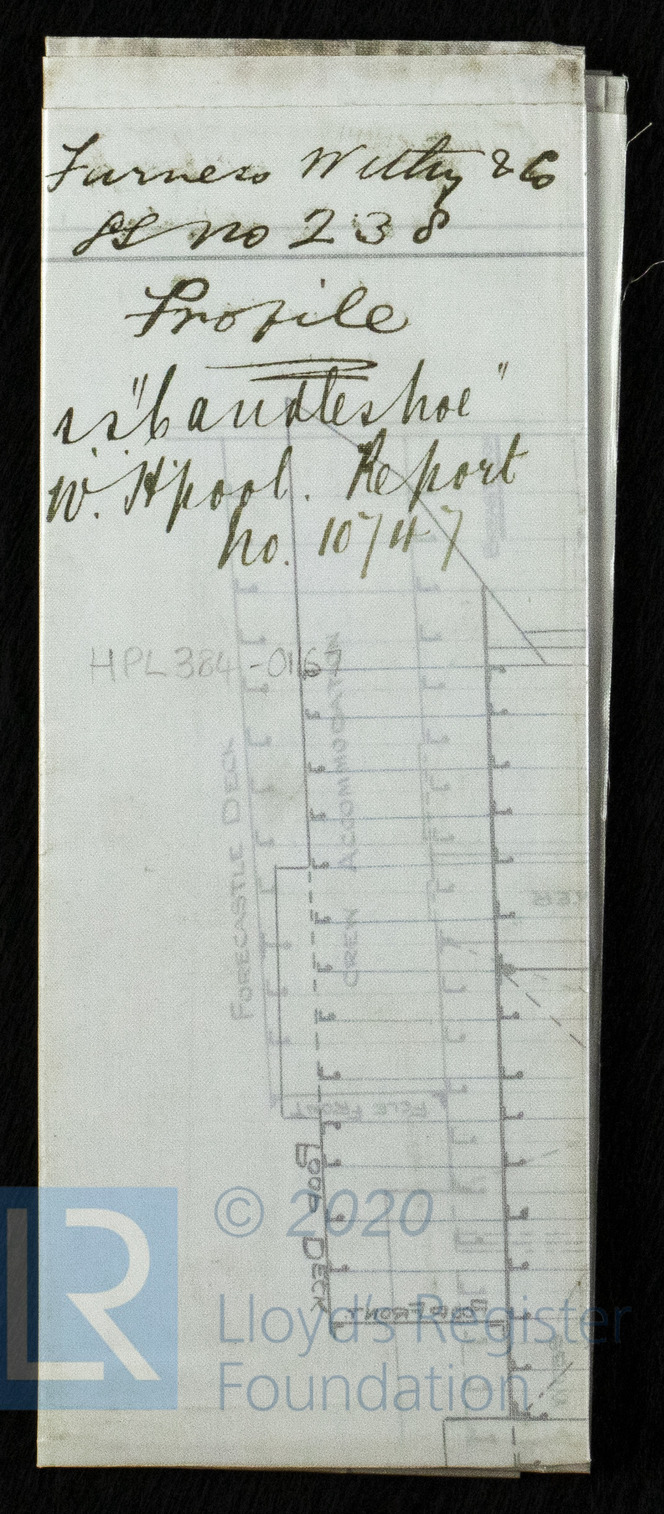 Furness Withy & Co
SS no 238
Profile
ss "Candleshoe"
W. H'pool. Report
no. 10747
HPL384-0167
FORECASTLE DECK
CREW ACCOMMODATION
FCLE FRONT
POOP DECK
POOP FRONT
LR
© 2020
Lloyd's Register
Foundation